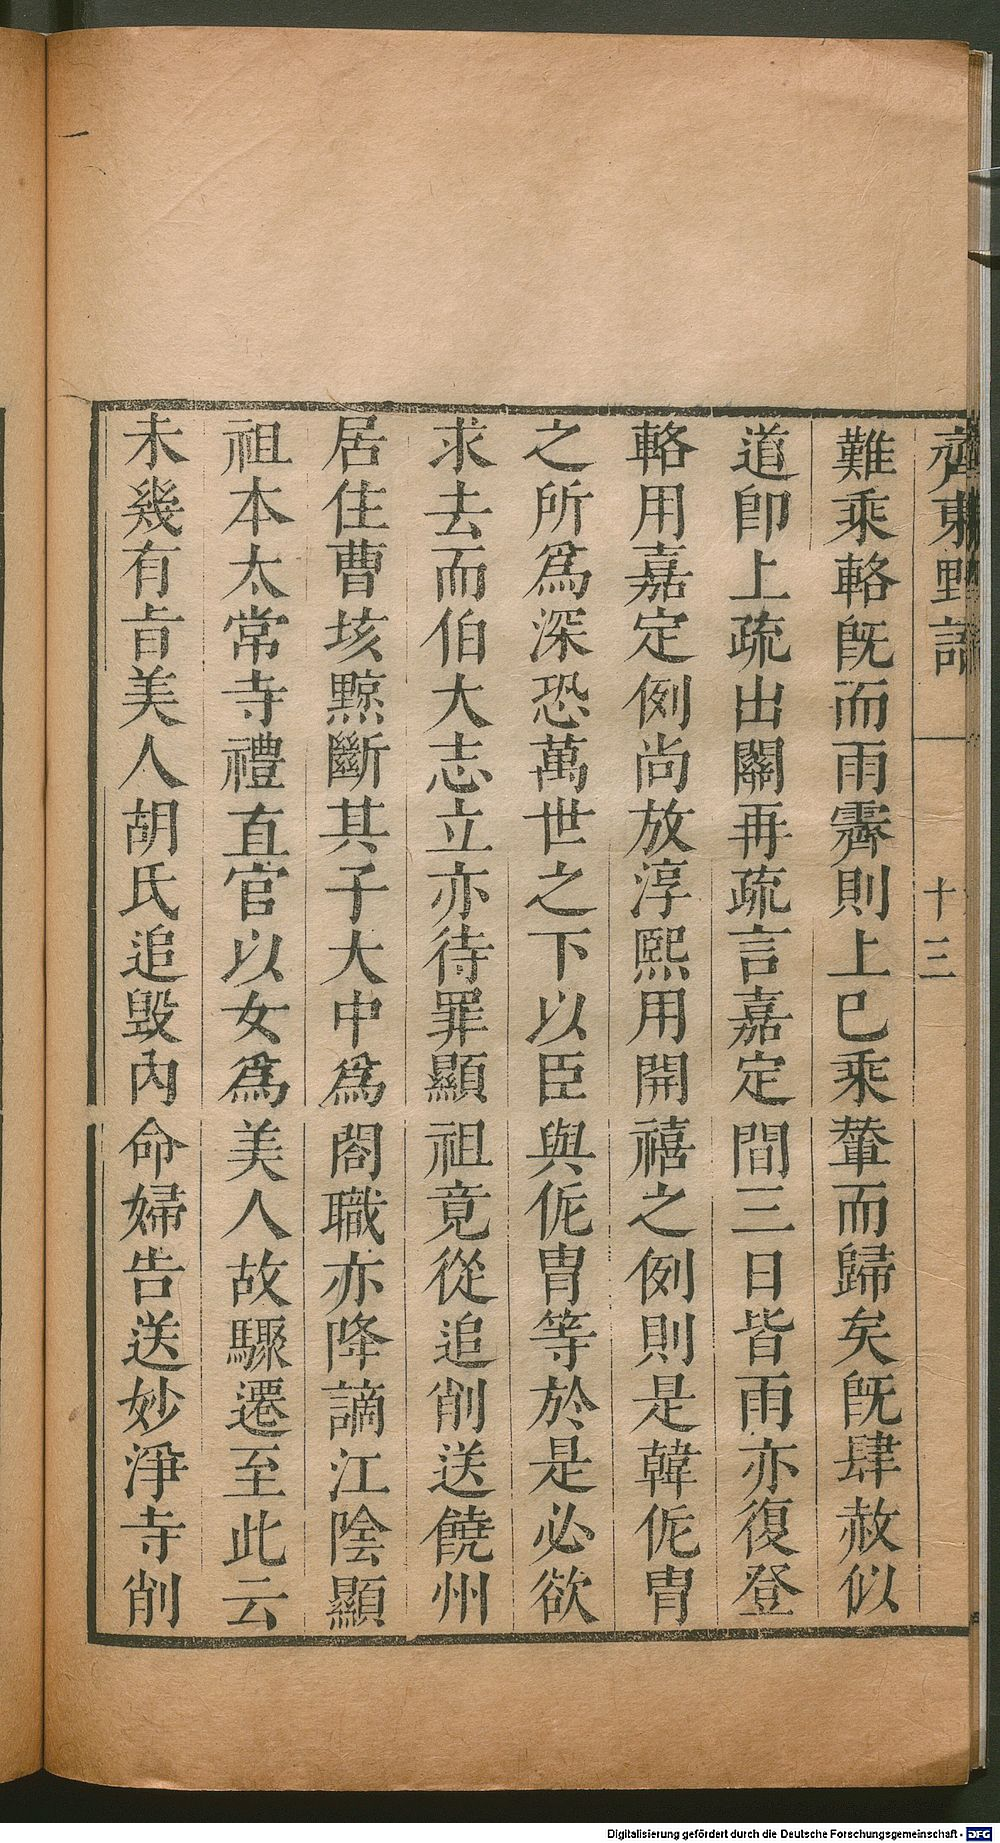 齊東野語 十三
難乘輅旣而雨霽則上巳乘輦而歸矣旣肆赦似
道卽上疏出關再疏言嘉定間三日皆雨亦復登
輅用嘉定例尚放淳熙用開禧之例則是韓侂冑
之所爲深恐萬世之下以臣與侂冑等於是必欲
求去而伯大志立亦待罪顯祖竟從追削送饒州
居住曹垓黥斷其子大中爲閤職亦降謫江陰顯
祖本太常寺禮直官以女爲美人故驟遷至此云
未幾有旨美人胡氏追毀內命婦告送妙淨寺削
Digitalisierung gefördert durch die Deutsche Forschungsgemeinschaft - DFG